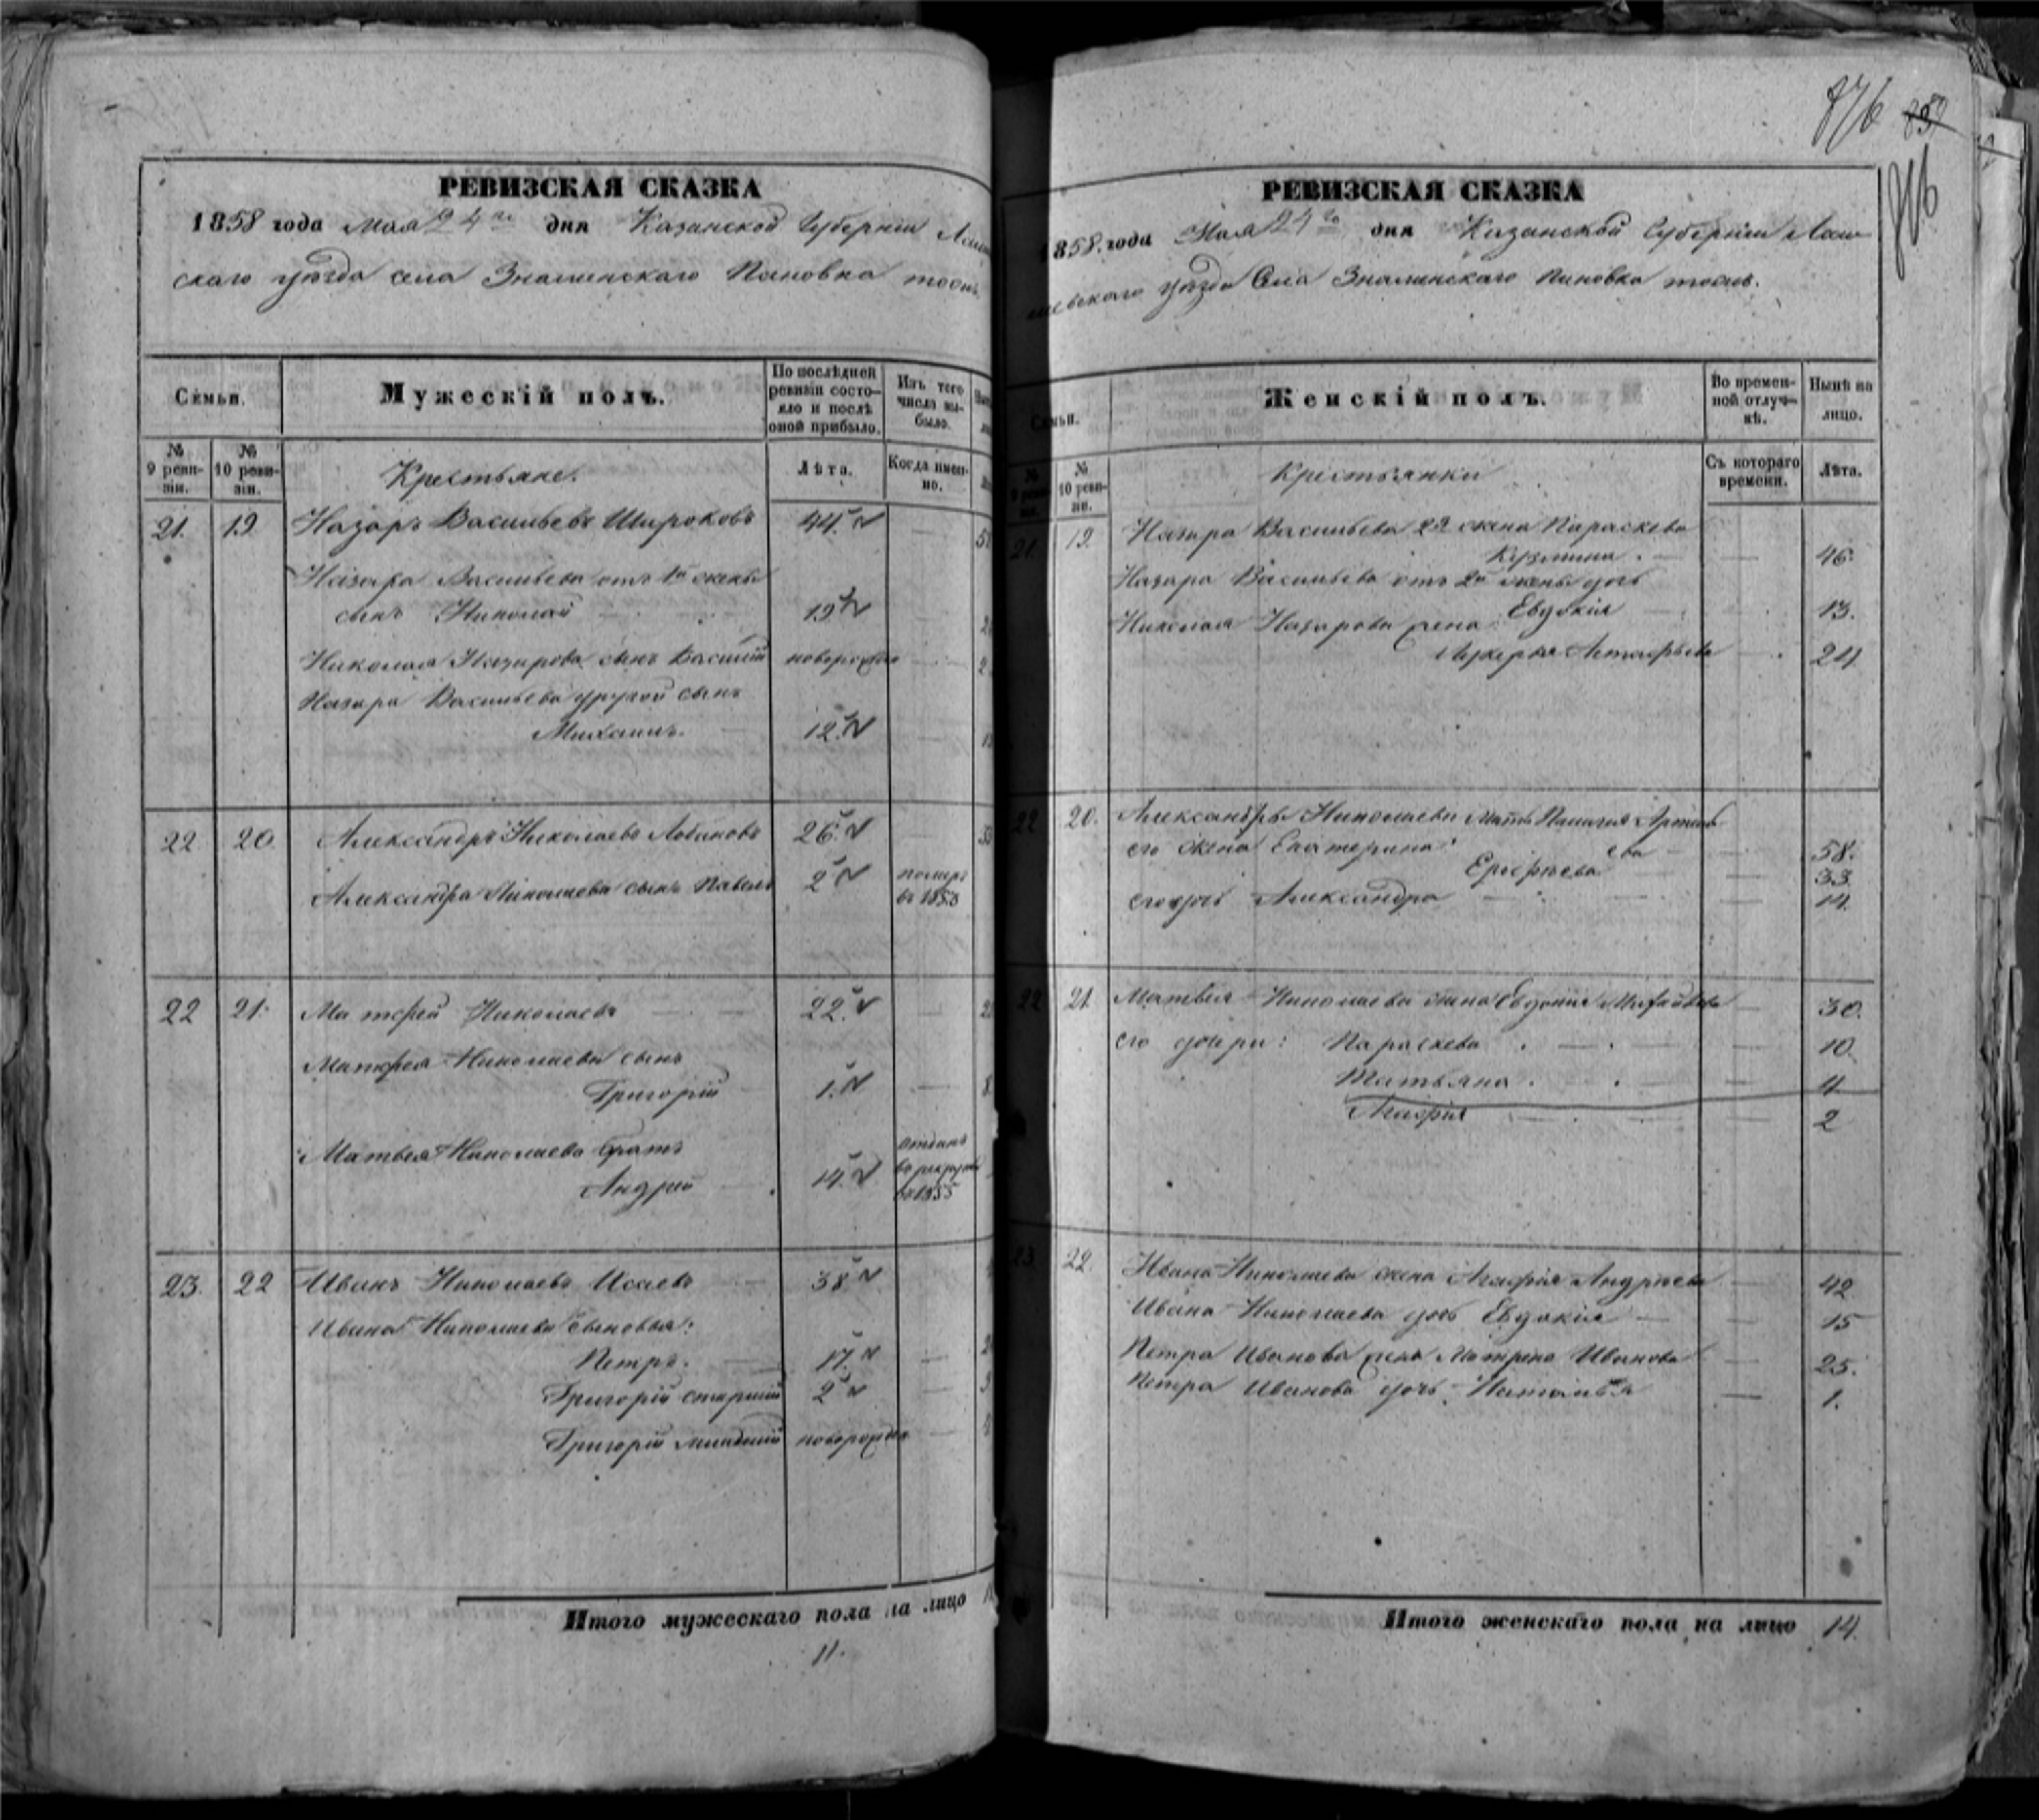 РЕВИЗСКАЯ СКАЗКА
1858 года Мая 24го дня Казанской Губерніи
скаго уѣзда села Знаменскаго Пановка тожъ
Семьи.
Мужескій полъ.
По послѣдней ревизіи состояло и послѣ оной прибыло.
Изъ того числа выбыло.
№ 9 ревизіи.
№ 10 ревизіи.
Крестьяне.
Лѣта.
Когда именно.
21. 19 Назаръ Васильевъ Широковъ 44.
Назара Васильева отъ 1й жены
сынъ Николай 19
Николая Назарова сынъ Василій новорожден
Назара Васильева другой сынъ
Михаилъ. 12.
22 20 Александръ Николаевъ Лобановъ 26.
Александра Николаева сынъ Павелъ 2 померъ
въ 1853
22 21. Матфей Николаевъ 22.
Матфея Николаева сынъ
Григорій 1.
Матвея Николаева братъ
Андрей 14. отданъ
въ рекруты
въ 1855
23. 22 Иванъ Николаевъ Исаевъ 38.
Ивана Николаева сыновья:
Петръ. 17.
Григорій старшій 2
Григорій младшій новорожден
Итого мужескаго пола на лицо
11.
876 859
876
РЕВИЗСКАЯ СКАЗКА
1858. года Мая 24го дня Казанской Губерніи Лаи
шевскаго уѣзда Села Знаменскаго Пановка тожъ.
Семьи.
Женскій полъ.
Во временной отлучкѣ.
Нынѣ на лицо.
№ 10 ревизіи.
Крестьянки
Съ котораго времени.
Лѣта.
21. 19. Назара Васильева 2я жена Параскева
Кузмина. 46.
Назара Васильева отъ 2й жены дочь
Евдокія 13.
Николая Назарова жена
Лукерья Астафьева 24
22 20. Александра Николаева мать Пелагея Артемь
ева 58.
его жена Екатерина
Ерофѣева 33
его дочь Александра 14.
22 21. Матвея Николаева жена Евдокія Михайлова 30.
его дочери: Параскева 10.
Татьяна. 4
Агафія 2
23 22. Ивана Николаева жена Агафія Андрѣева 42
Ивана Николаева дочь Евдокія 15
Петра Иванова жена Матрена Иванова 25.
Петра Иванова дочь Наталья 1.
Итого женскаго пола на лицо 14.